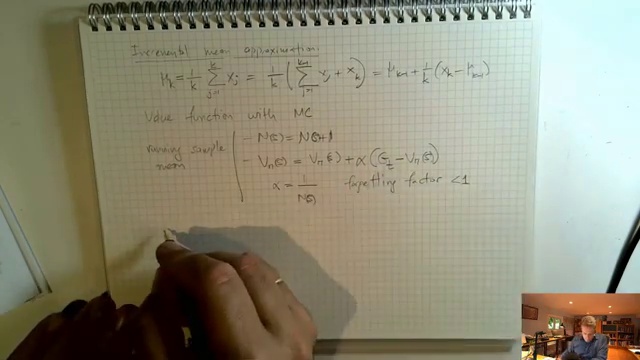 Incremental mean approximation
μ_k = 1/k Σ_{j=1}^{k} x_j = 1/k (Σ_{j=1}^{k-1} x_j + x_k) = μ_{k-1} + 1/k (x_k - μ_{k-1})
Value function with MC
running sample mean
- N(s) = N(s)+1
- V_π(s) = V_π(s) + α(G_t - V_π(s))
α = 1/N(s) forgetting factor <1